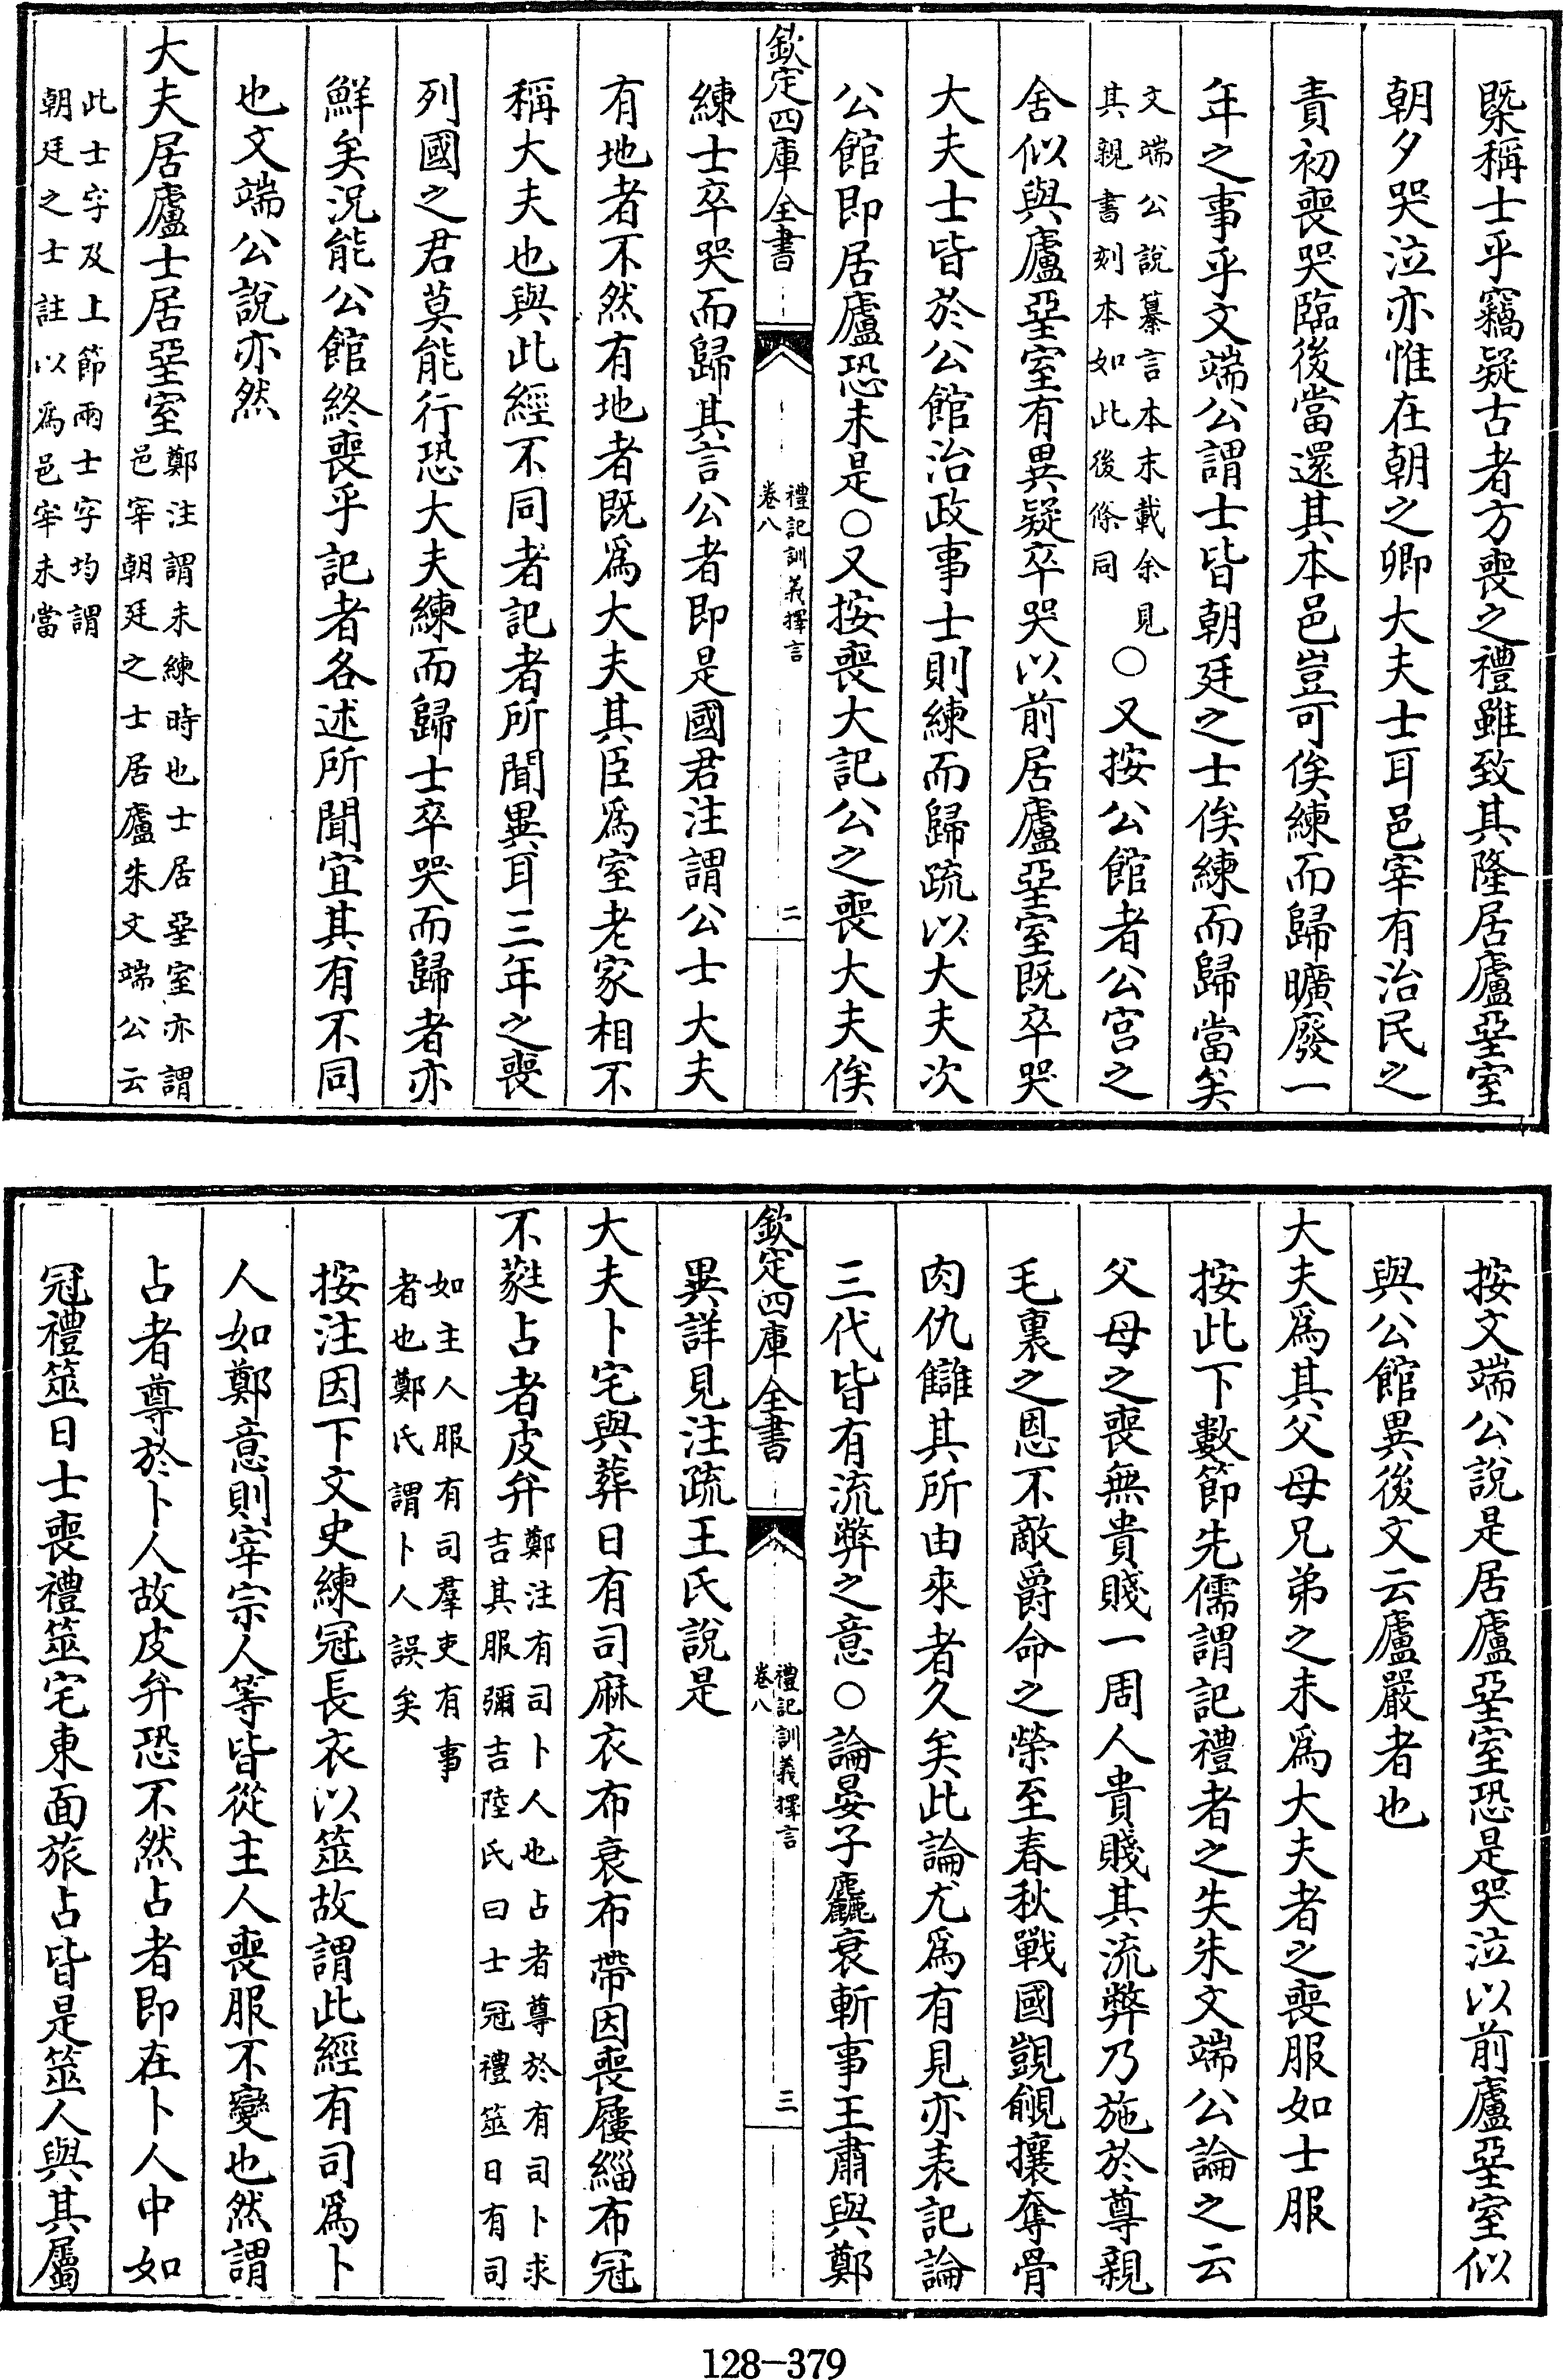 既稱士乎竊疑古者方喪之禮雖致其隆居廬堊室
朝夕哭泣亦惟在朝之卿大夫士耳邑宰有治民之
責初喪哭臨後當還其本邑豈可俟練而歸曠廢一
年之事乎文端公謂士皆朝廷之士俟練而歸當矣
文端公說纂言本末載余見
其親書刻本如此後條同
○又按公館者公宫之
舍似與廬堊室有異疑卒哭以前居廬堊室既卒哭
大夫士皆於公館治政事士則練而歸疏以大夫次
公館即居廬恐未是○又按喪大記公之喪大夫俟
欽定四庫全書
禮記訓義擇言
卷八
二
練士卒哭而歸其言公者即是國君注謂公士大夫
有地者不然有地者既爲大夫其臣爲室老家相不
稱大夫也與此經不同者記者所聞異耳三年之喪
列國之君莫能行恐大夫練而歸士卒哭而歸者亦
鮮矣況能公館終喪乎記者各述所聞宜其有不同
也文端公說亦然
大夫居廬士居堊室
鄭注謂未練時也士居堊室亦謂
邑宰朝廷之士居廬朱文端公云
此士字及上節兩士字均謂
朝廷之士註以爲邑宰未當
按文端公說是居廬堊室恐是哭泣以前廬堊室似
與公館異後文云廬嚴者也
大夫爲其父母兄弟之未爲大夫者之喪服如士服
按此下數節先儒謂記禮者之失朱文端公論之云
父母之喪無貴賤一周人貴賤其流弊乃施於尊親
毛裏之恩不敵爵命之榮至春秋戰國覬覦攘奪骨
肉仇讎其所由來者久矣此論尤爲有見亦表記論
三代皆有流弊之意○論晏子麤衰斬事王肅與鄭
欽定四庫全書
禮記訓義擇言
卷八
三
異詳見注疏王氏說是
大夫卜宅與葬日有司麻衣布衰布帶因喪屨緇布冠
不蕤占者皮弁
鄭注有司卜人也占者尊於有司卜求
吉其服彌吉陸氏曰士冠禮筮日有司
如主人服有司羣吏有事
者也鄭氏謂卜人誤矣
按注因下文史練冠長衣以筮故謂此經有司爲卜
人如鄭意則宰宗人等皆從主人喪服不變也然謂
占者尊於卜人故皮弁恐不然占者即在卜人中如
冠禮筮日士喪禮筮宅東面旅占皆是筮人與其屬
128-379